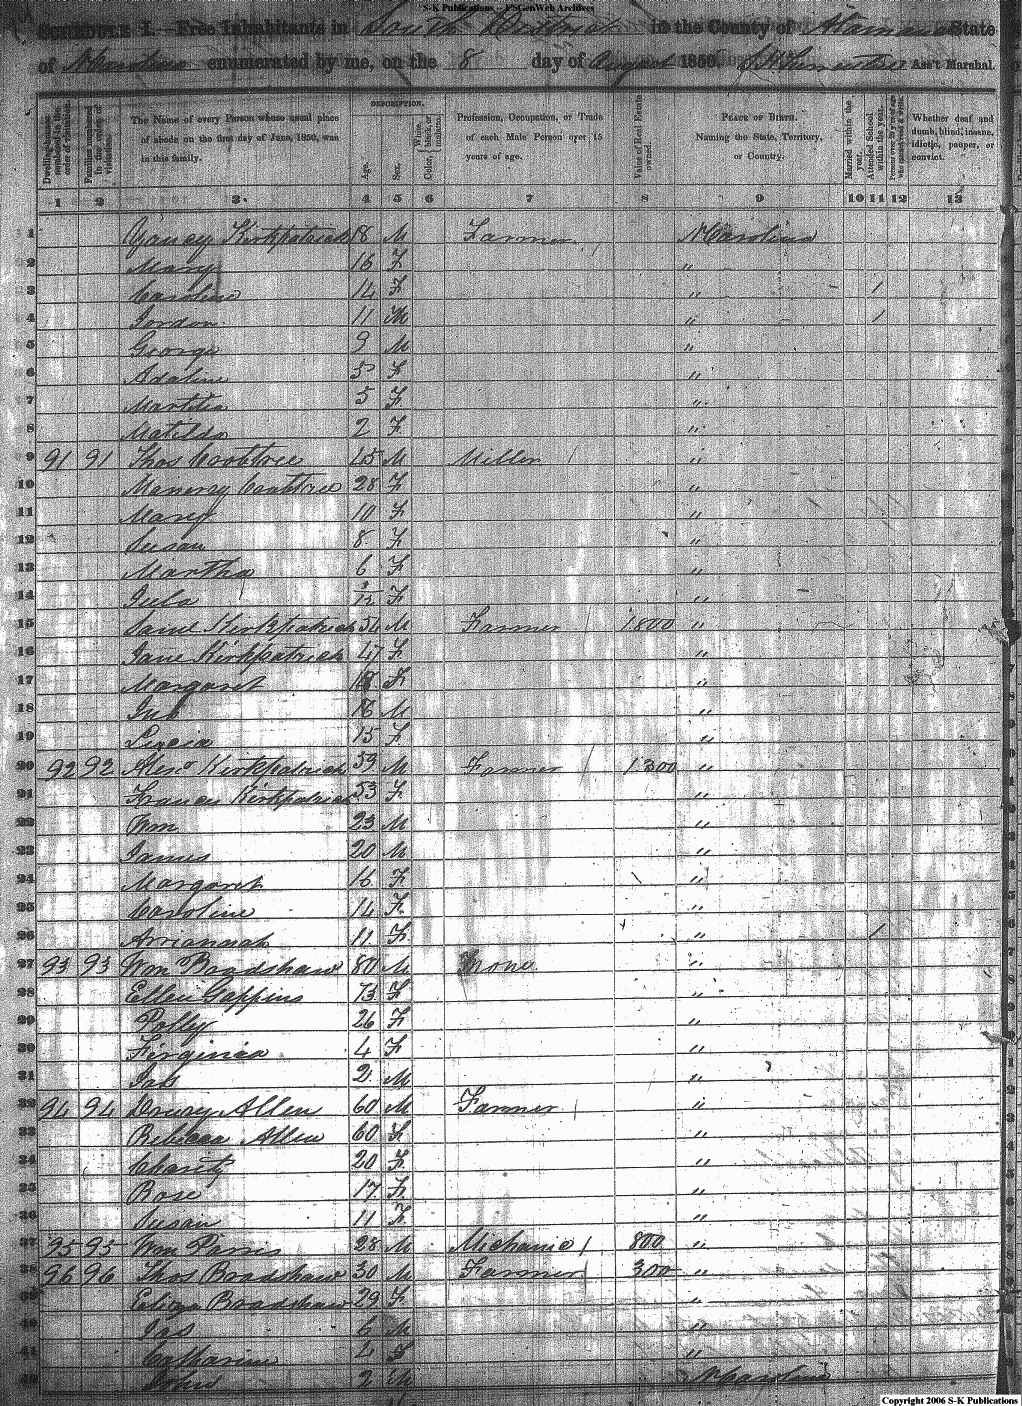 S-K Publications -- USGenWeb Archives
SCHEDULE I.—Free Inhabitants in South District in the County of Alamance State
of N Carolina enumerated by me, on the 8 day of August 1850. Ass't Marshal.
Dwelling-houses numbered in the order of visitation.
Families numbered in the order of visitation.
The Name of every Person whose usual place of abode on the first day of June, 1850, was in this family.
DESCRIPTION.
Age.
Sex.
Color, White, black, or mulatto.
Profession, Occupation, or Trade of each Male Person over 15 years of age.
Value of Real Estate owned.
PLACE OF BIRTH. Naming the State, Territory, or Country.
Married within the year.
Attended School within the year.
Persons over 20 y'rs of age who cannot read & write.
Whether deaf and dumb, blind, insane, idiotic, pauper, or convict.
1 2 3 4 5 6 7 8 9 10 11 12 13
1 Yancy Kirkpatrick 18 M Farmer N Carolina
2 Mary 16 F "
3 Caroline 14 F " 1
4 Jordon 11 M " 1
5 George 9 M "
6 Adaline 5 F "
7 Martitia 5 F "
8 Matilda 2 F "
9 91 91 Thos Crabtree 45 M Miller "
10 Minervy Crabtree 28 F "
11 Mary 10 F "
12 Susan 8 F "
13 Martha 6 F "
14 F "
15 Saml Kirkpatrick 54 M Farmer 1800 "
16 Jane Kirkpatrick 47 F "
17 Margaret 18 F "
18 Jno 16 M "
19 15 F "
20 92 92 Alexr Kirkpatrick 59 M Farmer 1300 "
21 Frances Kirkpatrick 53 F "
22 Wm 23 M "
23 James 20 M "
24 Margaret 16 F "
25 Caroline 14 F "
26 Arriannah 11 F " 1
27 93 93 Wm Bradshaw 80 M None "
28 Ellen Gappins 73 F "
29 Polly 26 F "
30 Firginica 4 F "
31 Jas 2 M "
32 94 94 Drury Allen 60 M Farmer "
33 Rebecca Allen 60 F "
34 Charity 20 F "
35 Rose 17 F "
36 Susan 11 F "
37 95 95 Wm Parris 28 M Michanic 800 "
38 96 96 Thos Bradshaw 30 M Farmer 300 "
39 Eliza Bradshaw 29 F "
40 Jas 6 M "
41 Catharine 4 F "
42 John 2 M N Carolina
Copyright 2006 S-K Publications